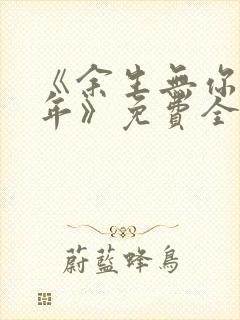 《余生無你
年》免費全
蔚藍蜂鳥